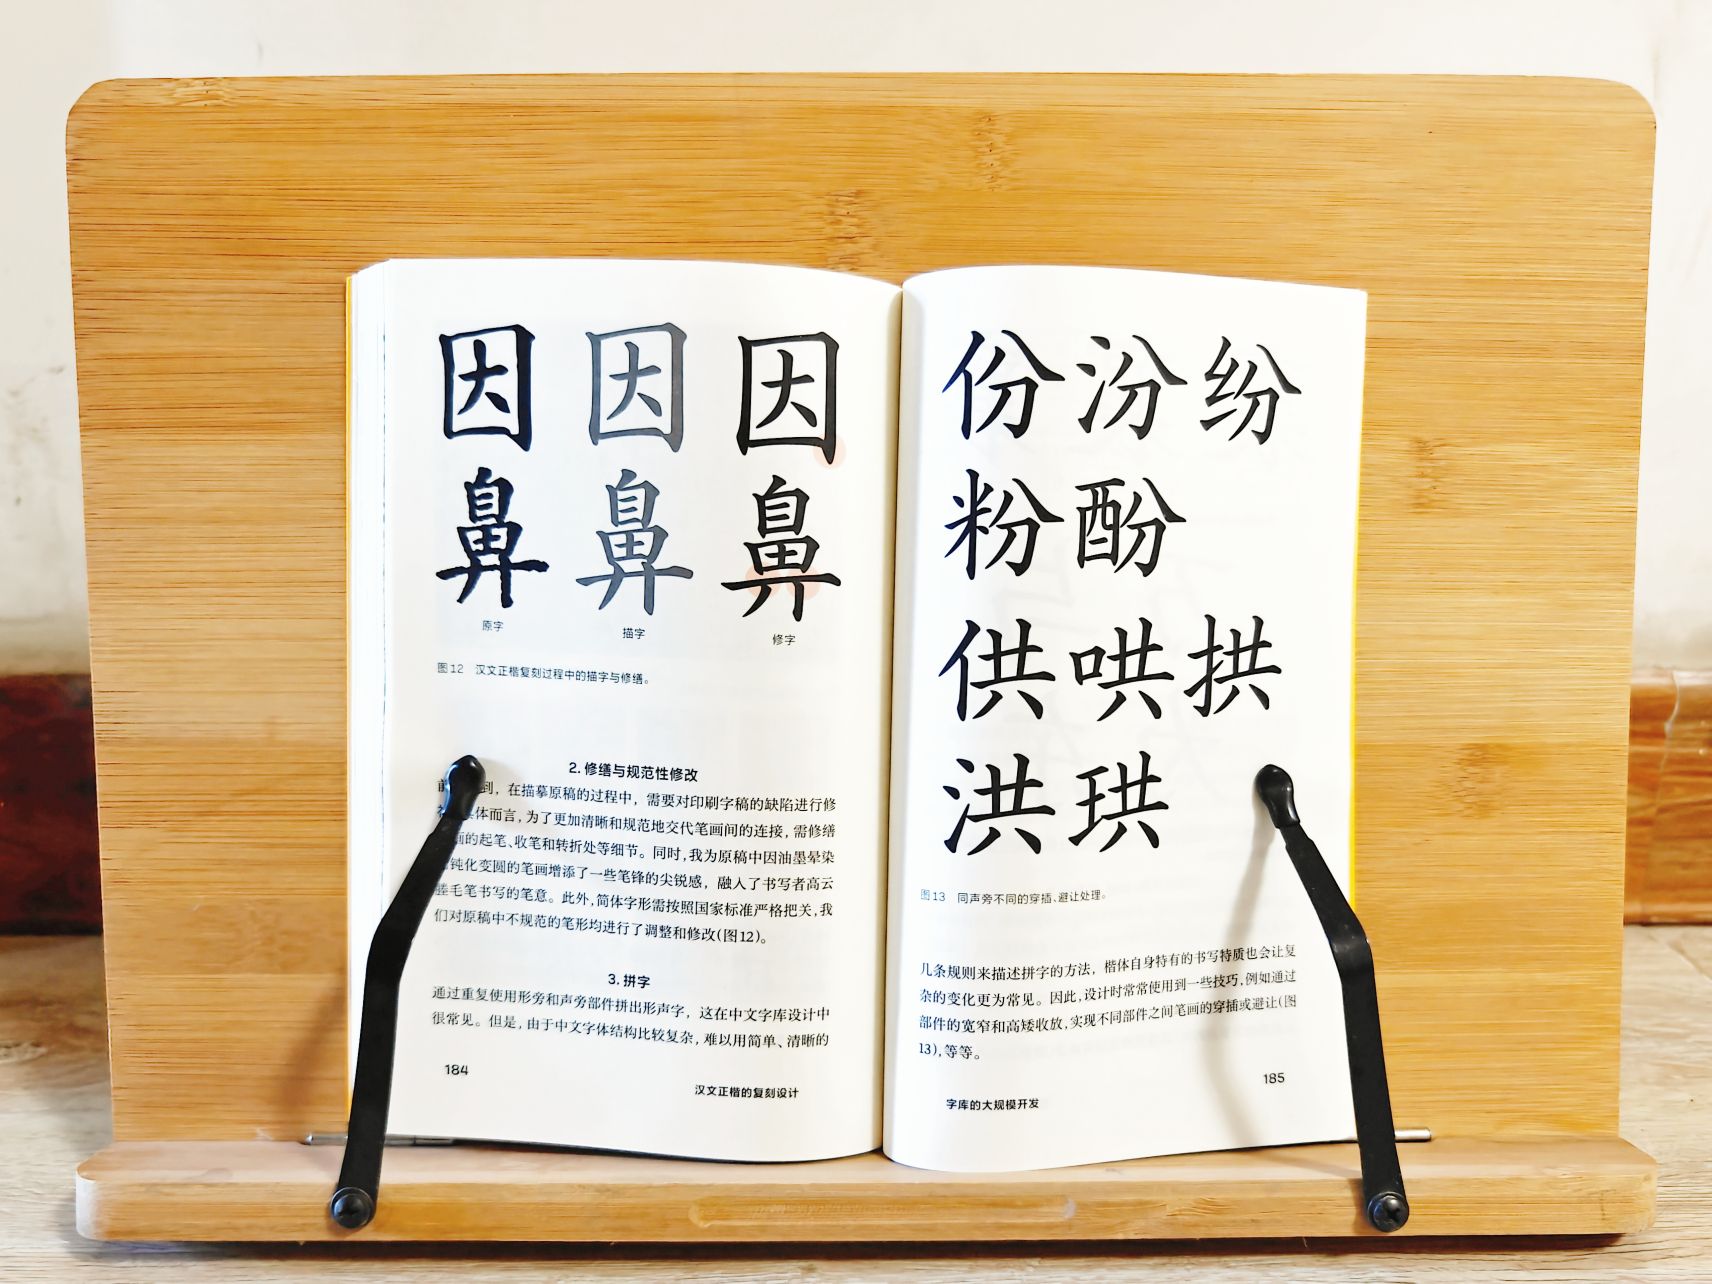 因 因 因
鼻 鼻 鼻
原字 描字 修字
图12 汉文正楷复刻过程中的描字与修缮。
2. 修缮与规范性修改
到，在描摹原稿的过程中，需要对印刷字稿的缺陷进行修
体而言，为了更加清晰和规范地交代笔画间的连接，需修缮
的起笔、收笔和转折处等细节。同时，我为原稿中因油墨晕染
钝化变圆的笔画增添了一些笔锋的尖锐感，融入了书写者高云
塍毛笔书写的笔意。此外，简体字形需按照国家标准严格把关，我
们对原稿中不规范的笔形均进行了调整和修改(图12)。
3. 拼字
通过重复使用形旁和声旁部件拼出形声字，这在中文字库设计中
很常见。但是，由于中文字体结构比较复杂，难以用简单、清晰的
184
汉文正楷的复刻设计
份 汾 纷
粉 酚
供 哄 拱
洪 珙
图13 同声旁不同的穿插、避让处理。
几条规则来描述拼字的方法，楷体自身特有的书写特质也会让复
杂的变化更为常见。因此，设计时常常使用到一些技巧，例如通过
部件的宽窄和高矮收放，实现不同部件之间笔画的穿插或避让(图
13)，等等。
185
字库的大规模开发